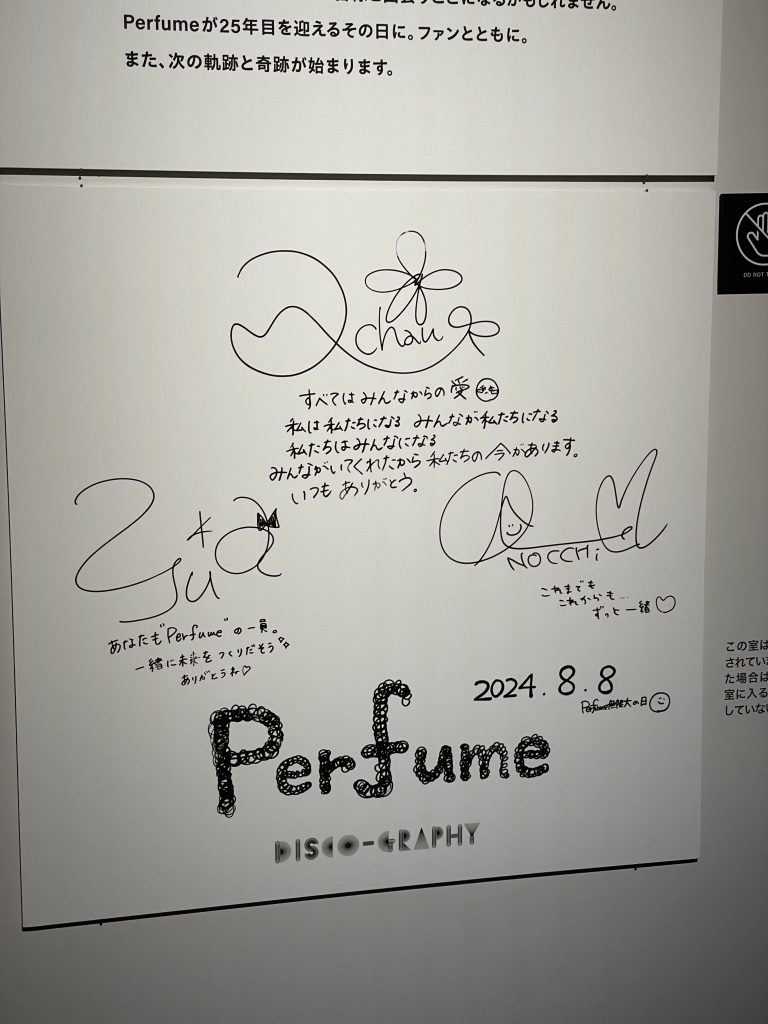 Perfumeが25年目を迎えるその日に。ファンとともに。
また、次の軌跡と奇跡が始まります。
chau
すべては みんなからの 愛
私は 私たちになる みんなが私たちになる
私たちはみんなになる
みんながいてくれたから 私たちの 今があります。
いつも ありがとう。
NOCCHi
これまでも
これからも…
ずっと 一緒♡
あなたも"Perfume"の一員。
一緒に未来をつくりだそう
ありがとうね♡
2024.8.8
大の日
Perfume
DISCO-GRAPHY
DO NOT T
この室は
されてい
た場合は
室に入る
していない